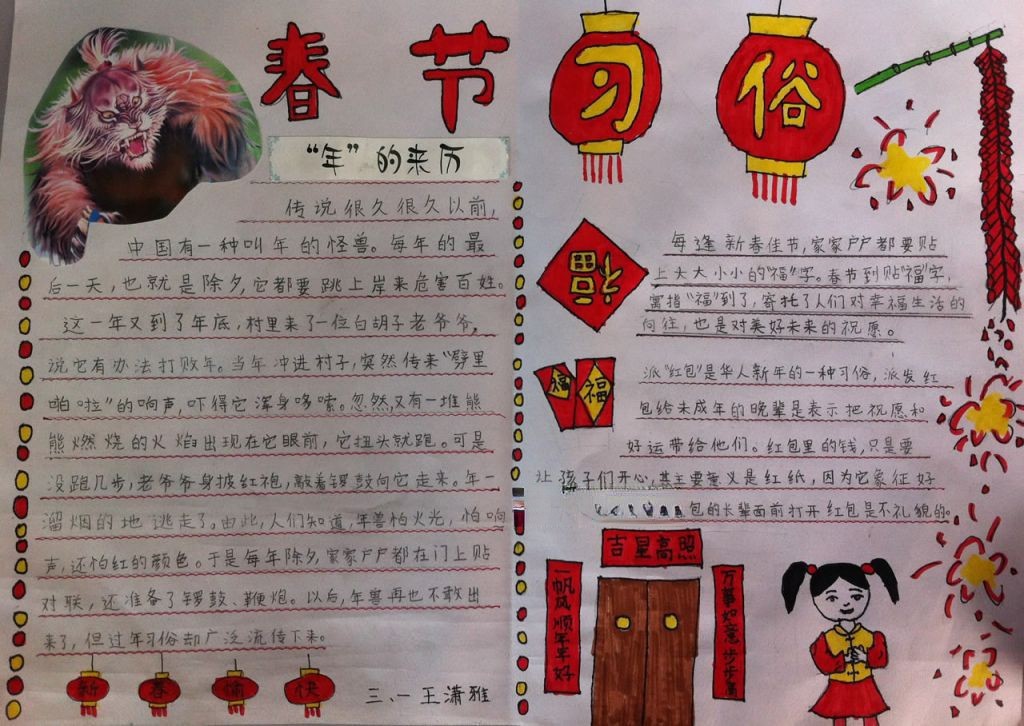 春节
习俗
“年”的来历
传说很久很久以前，
中国有一种叫年的怪兽。每年的最
后一天，也就是除夕，它都要跳上岸来危害百姓。
这一年又到了年底，村里来了一位白胡子老爷爷，
说它有办法打败年。当年冲进村子，突然传来“劈里
啪啦”的响声，吓得它浑身哆嗦。忽然，又有一堆熊
熊燃烧的火焰出现在它眼前，它扭头就跑。可是
没跑几步，老爷爷身披红袍，敲着锣鼓向它走来。年一
溜烟的地逃走了。由此，人们知道，年兽怕火光，怕响
声，还怕红的颜色。于是每年除夕，家家户户都在门上贴
对联，还准备了锣鼓、鞭炮。以后，年兽再也不敢出
来了，但过年习俗却广泛流传下来。
新春愉快
三、一王潇雅
每逢新春佳节，家家户户都要贴
上大大小小的“福”字。春节到贴“福”字，
寓指“福”到了，寄托了人们对幸福生活的
向往，也是对美好未来的祝愿。
福
派“红包”是华人新年的一种习俗，派发红
包给未成年的晚辈是表示把祝愿和
好运带给他们。红包里的钱，只是要
让孩子们开心，其主要意义是红纸，因为它象征好
包的长辈面前打开红包是不礼貌的。
福福
吉星高照
一帆风顺年年好
万事如意步步高